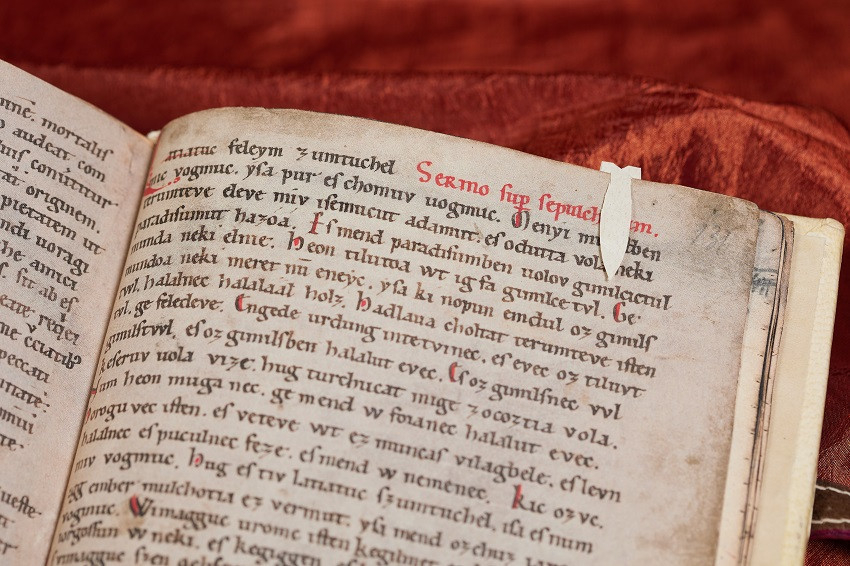 mortaliſ
audeat com
conſtituitur
originem.
pietatem ut
uoragi
amici
ſit ab eſ

peccati

feleym zumtuchel Sermo ſup ſepulch
vogmuc. yſa pur eſ chomuv uogmuc. Menyi
terumteve eleve miv iſemucut adamut. eſ odutta vola neki
paradiſumut hazoa. Eſ mend paradiſumben uolov gimilcictul
munda neki elnie. Heon tilutoa wt ig fa gimilce tvl. Ge
mundoa neki meret nū eneyc. yſa ki nopun emdul oz gimilſ
tvvl. halalnec halalaal holz. Hadlaua choltat terumteve iſten
tvl. ge feledeve. Engede urdung intetvinec. eſ evec oz tiluvt
gimilſtvvl. eſ oz gimilſben halalut evec. Eſ oz gimilſnec vvl
keſeruv uola vize. hug turchucat mige zocoztia vola.
num heon muga nec. ge mend w foianec halalut evec.
horogu vec iſten. eſ veteve wt ez muncaſ vilagbele. eſ levn
halalnec eſ puculnec feze. eſ mend w nemenec. Kic oz vc.
miv vogmuc. Hug eſ tiv latiatuc ſzumtuchel. iſa eſ num
ember mulchotia ez vermut. yſa mend ozchuz
vogmuc. Wimagguc uromc iſten kegilmet
w neki. eſ kegiggen